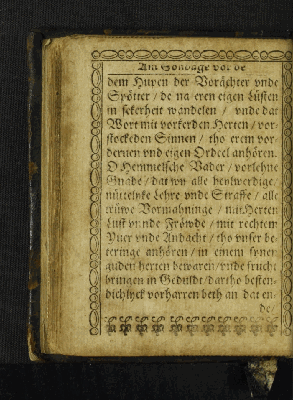 Am Sondage vor de
dem Hupen der Vorächter vnde
Spötter / de na eren eigen Lüsten
in sekerheit wandelen / vnde dat
Wort mit vorkerden Herten / vor-
stockeden Sinnen / tho erem vor-
deruen vnd eigen Ordeel anhören.
O Hemmelsche Vader / vorlehne
Gnade / dat wy alle heylwerdige /
nüttlyke Lehre vnde Straffe / alle
trüwe Vormahninge / mit Herten
Lust vnnde Fröwde / mit rechtem
Vuer vnde Andacht / tho vnser be-
teringe anhören / in einem fynen
guden herten bewaren / vnde frucht
bringen in Gedüldt / dartho besten-
dichlyck vorharren beth an dat en-
de